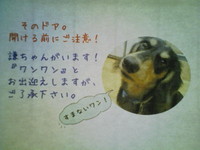 そのドア。
開ける前にご注意！
謙ちゃんがいます！
『ワンワン』と
お出迎えしますが、
ご了承下さい。
すまないワン！